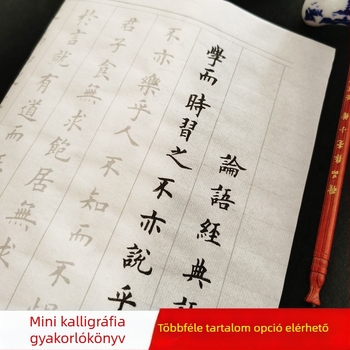 論語經典
學而時習之不亦說乎
不亦樂乎人不知而不
君子食無求飽居無求
於言就有道而
Mini kalligráfia
gyakorlókönyv
Többféle tartalom opció elérhető